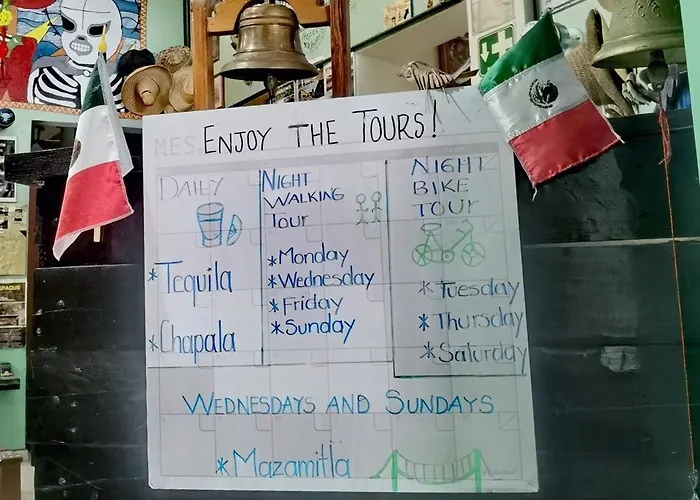 ENJOY THE TOURS!
MES
DAILY
*Tequila
*Chapala
NIGHT
WALKING
TOUR
*Monday
*Wednesday
*Friday
*Sunday
NIGHT
BIKE
TOUR
*Tuesday
*Thursday
*Saturday
WEDNESDAYS AND SUNDAYS
*Mazamitla